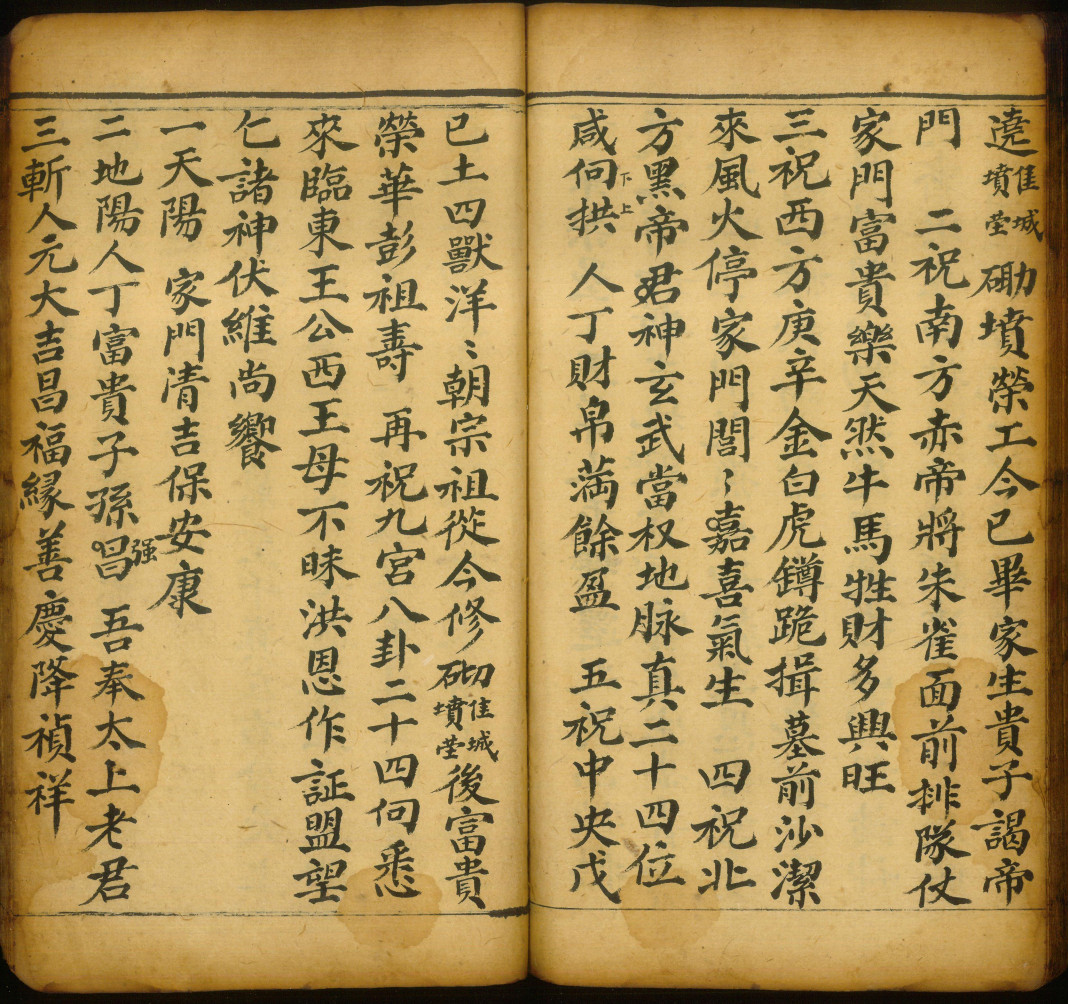 遶佳城墳塋砌墳榮工今已畢家生貴子謁帝
門　二祝南方赤帝將朱雀面前排隊仗
家門富貴樂天然牛馬牲財多興旺
三祝西方庚辛金白虎蹲跪揖墓前沙潔
來風火停家門闾〻嘉喜氣生　四祝北
方黑帝君神玄武當权地脉真二十四位
咸伺拱下上　人丁財帛满餘盈　五祝中央戊
已土四獸洋〻朝宗祖從今修砌佳城墳塋後富貴
榮華彭祖壽　再祝九宫八卦二十四伺悉
來臨東王公西王母不昧洪恩作証盟望
仁諸神伏維尚饗
一天陽　家門清吉保安康
二地陽人丁富貴子孫昌强　吾奉太上老君
三斬人元大吉昌福縁善慶降禎祥